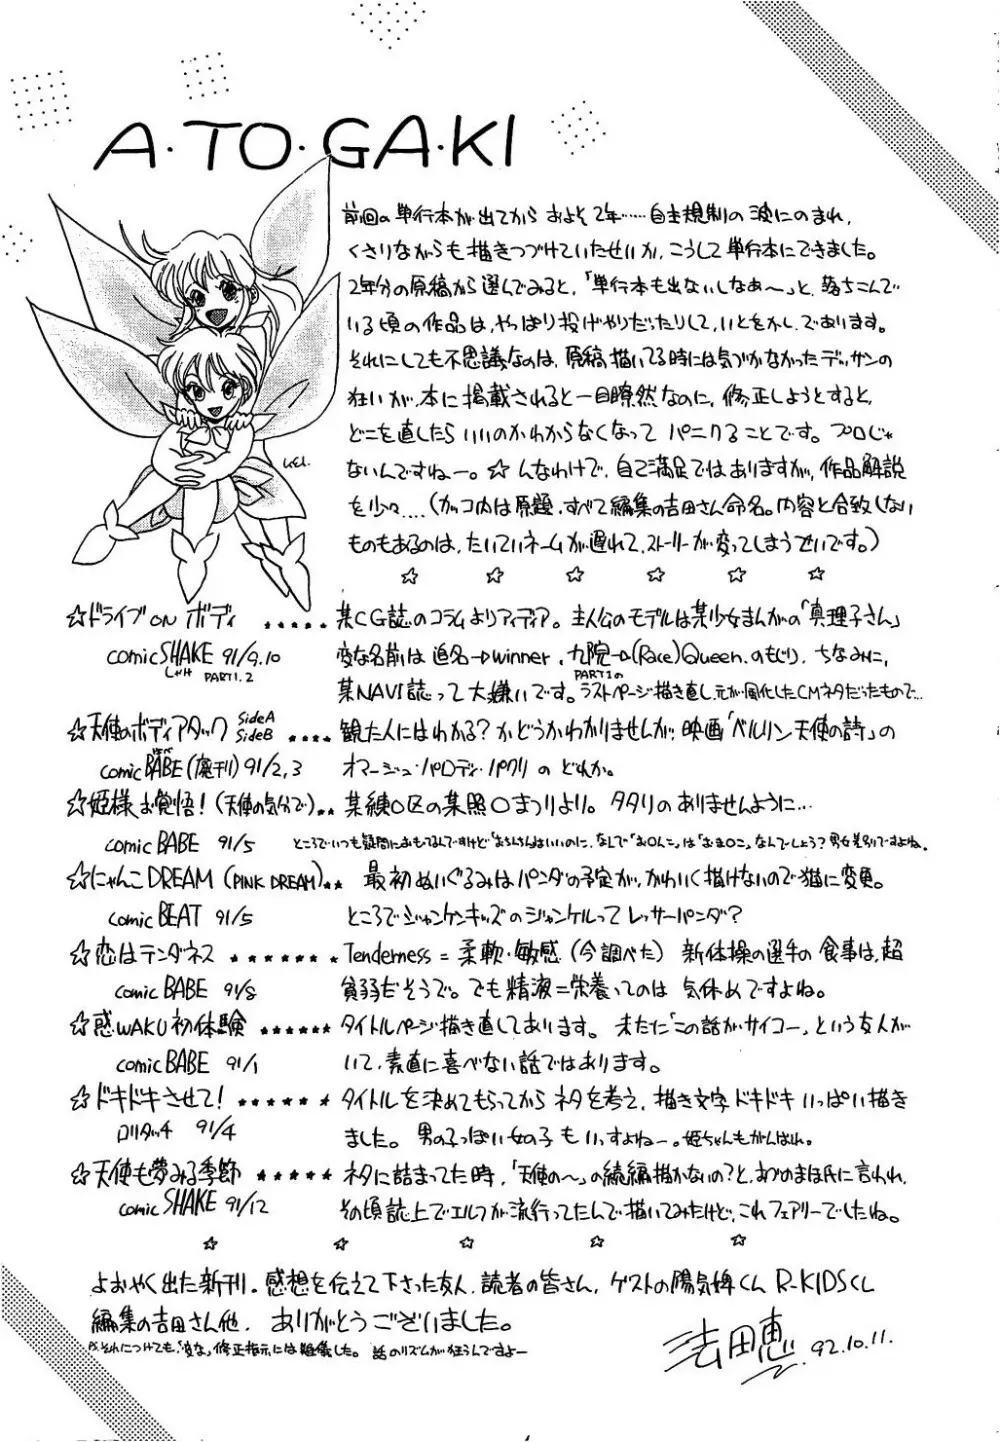 A・TO・GA・KI
前回の単行本が出てから およそ2年……自主規制の波にのまれ、
くさりながらも描きつづけていたせいか、こうして単行本にできました。
2年分の原稿から選んでみると、「単行本も出ないしなあ〜」と、落ちこんで
いる頃の作品は、やっぱり投げやりだったりして、いとをかし、であります。
それにしても不思議なのは、原稿描いてる時には気づかなかったデッサンの
狂いが、本に掲載されると一目瞭然なのに、修正しようとすると、
どこを直したらいいのかわからなくなって パニクることです。プロじゃ
ないんですねー。☆んなわけで、自己満足ではありますが、作品解説
を少々....(カッコ内は原題、すべて編集の吉田さん命名。内容と合致しない
ものもあるのは、たいていネームが遅れて、ストーリーが変ってしまうせいです。)
☆ ☆ ☆ ☆ ☆ ☆
☆ドライブON ボディ ★★★★★ 某CG誌のコラムよりアイディア。主人公のモデルは某少女まんがの「真理子さん」
comic SHAKE 91/9.10 変な名前は 迫名→winner、九院→(Race)Queen のもじり、ちなみに、
PART1.2 某NAVI誌って大嫌いです。PART1のラストページ描き直し、元が風化したCMネタだったもので…
☆天使のボディアタック SideA SideB ★★★★ 観た人にはわかる?かどうかわかりませんが、映画「ベルリン天使の詩」の
comic BABE(廃刊) 91/2,3 オマージュ・パロディ・パクリ の どれか。
☆姫様お覚悟!(天使の気分で)★★ 某練〇区の某照〇まつりより。タタリのありませんように…
comic BABE 91/5
☆にゃんこDREAM (PINK DREAM)★★ 最初ぬいぐるみはパンダの予定が、かわいく描けないので猫に変更。
comic BEAT 91/5 ところでジャンケンキッズのジャンケルってレッサーパンダ?
☆恋はテンダネス ★★★★★★★ Tenderness = 柔軟・敏感(今調べた) 新体操の選手の食事は、超
comic BABE 91/8 貧弱だそうで。でも精液=栄養ってのは 気休めですよね。
☆惑WAKU初体験 ★★★★★★ タイトルページ描き直してあります。未だに「この話がサイコー」という友人が
comic BABE 91/1 いて、素直に喜べない話ではあります。
☆ドキドキさせて! ★★★★★★ タイトルを決めてもらってからネタを考え、描き文字ドキドキいっぱい描き
ロリタッチ 91/4 ました。男の子っぽい女の子もいいすよねー。姫ちゃんもがんばれ。
☆天使も夢みる季節 ★★★★★ ネタに詰まってた時、「天使の〜」の続編描かないの?と、あづのまほ氏に言われ、
comic SHAKE 91/12 その頃誌上でエルフが流行ってたんで描いてみたけど、これフェアリーでしたね。
☆ ☆ ☆ ☆ ☆
ようやく出た新刊。感想を伝えて下さった友人、読者の皆さん、ゲストの陽気婢くん R-KIDSくん
編集の吉田さん他、ありがとうございました。
それにつけても、「変な」修正指示には難儀した。話のリズムが狂うんですよー
法田恵 92.10.11.